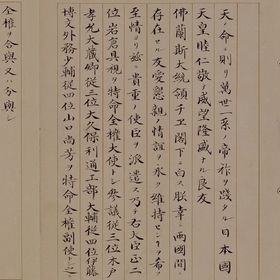 天ノ命ニ則リ萬世一系ノ帝祚ヲ践タル日本國
天皇睦仁敬テ威望隆盛ナル良友
佛蘭斯大統領チエ閣下ニ白ス朕幸ニ両國間ニ
存在セル友愛懇親ノ情誼ヲ永ク維持センヿヲ希フ
至情ヨリ茲ニ貴重ノ使臣ヲ派遣ス乃チ右大臣正二
位岩倉具視ヲ特命全權大使トシ参議従三位木戸
孝允大蔵卿従三位大久保利通工部大輔従四位伊藤
博文外務少輔従四位山口尚芳ヲ特命全權副使トシ之ニ
全權ヲ合與又ハ分與シ